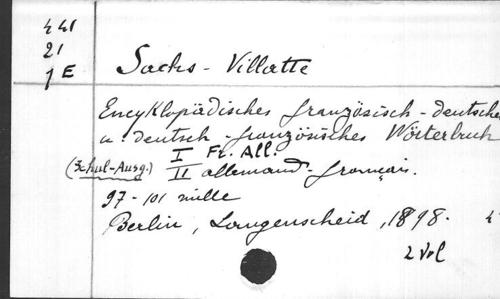 441
21
1 E
Sachs - Villatte
Encyklopädisches französisch - deutsches
u. deutsch - französisches Wörterbuch
I Fr. All.
(Schul-Ausg.) II allemand - français.
97 - 101 mille
Berlin, Langenscheid, 1898.
2 Vol